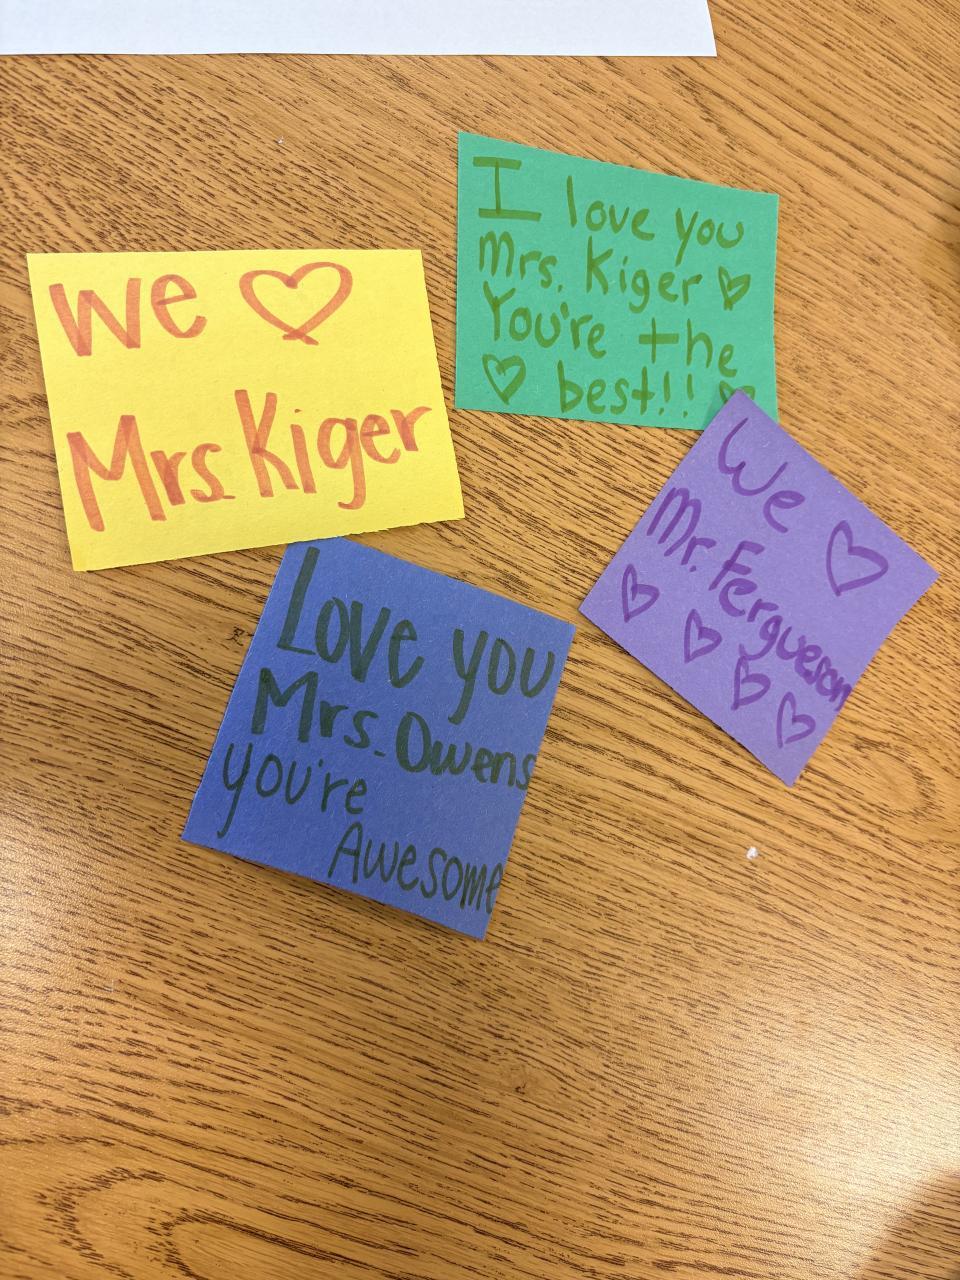 We ♡
Mrs Kiger
I love you
Mrs. Kiger ♡
You're the
♡ best!! ♡
We ♡
Mr. Fergueson
♡ ♡ ♡ ♡
Love you
Mrs. Owens
you're
Awesome